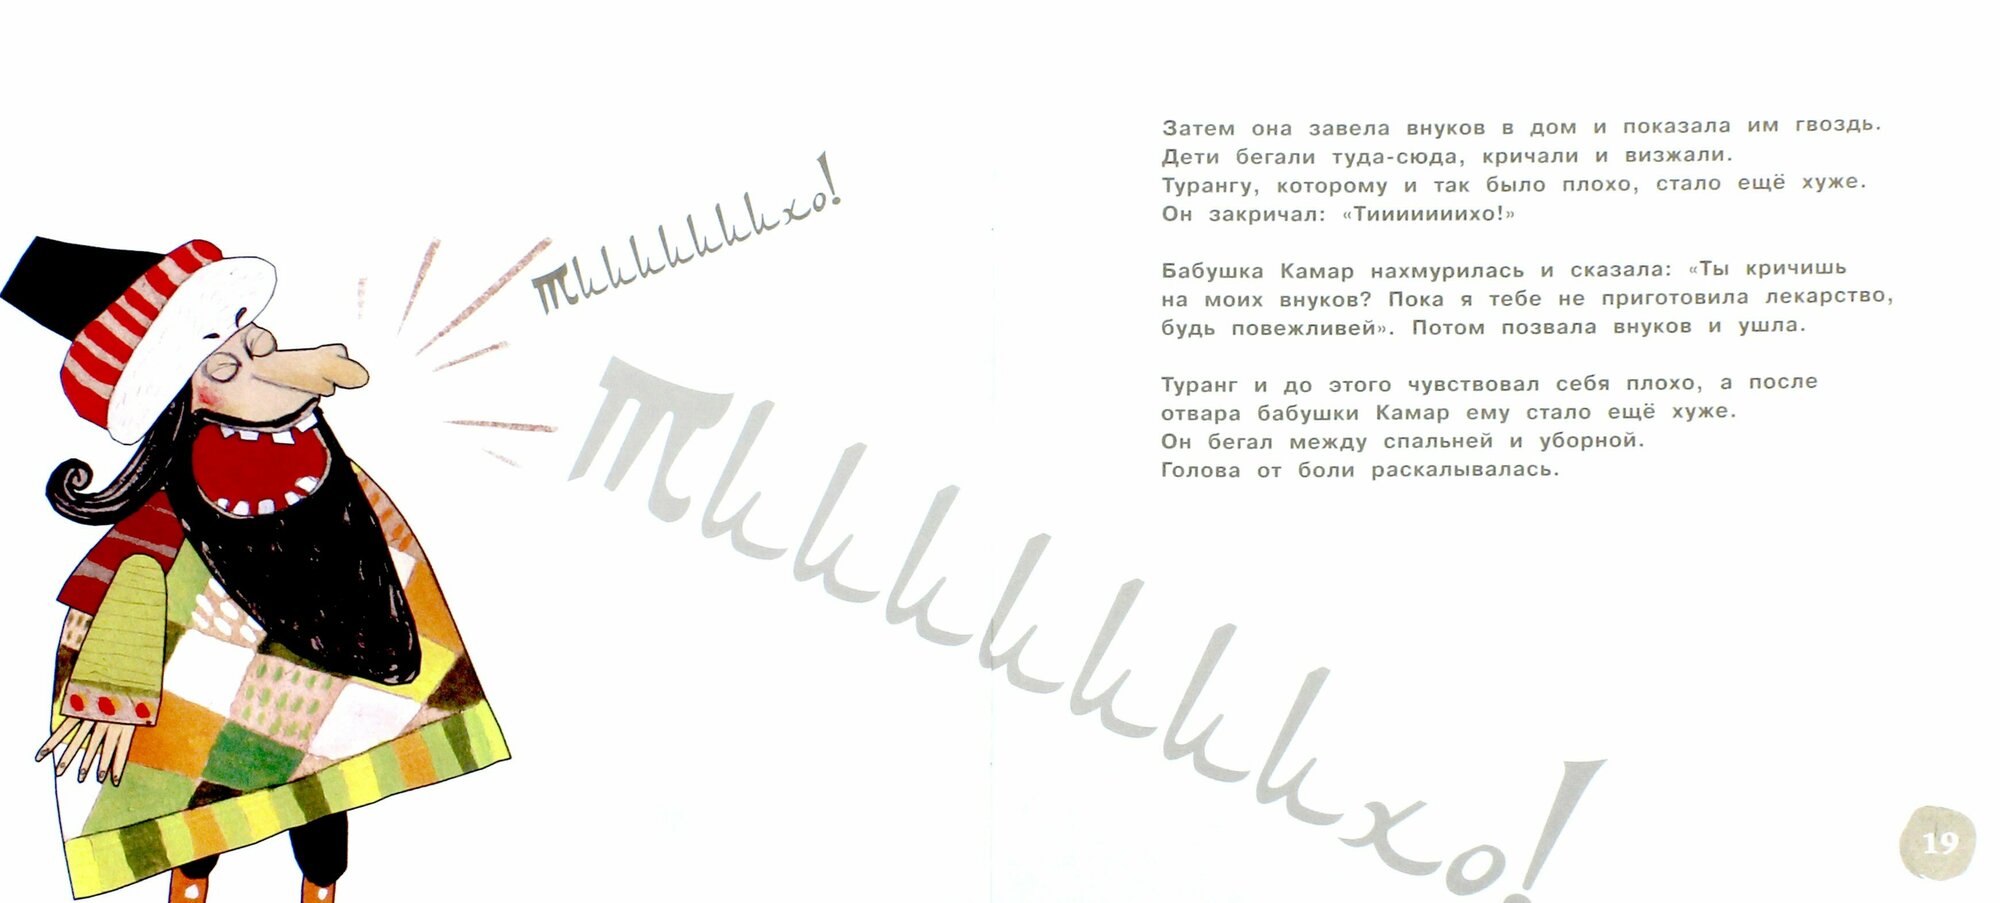 Тииииииихо!
Тииииииихо!
Затем она завела внуков в дом и показала им гвоздь.
Дети бегали туда-сюда, кричали и визжали.
Турангу, которому и так было плохо, стало ещё хуже.
Он закричал: «Тииииииихо!»
Бабушка Камар нахмурилась и сказала: «Ты кричишь
на моих внуков? Пока я тебе не приготовила лекарство,
будь повежливей». Потом позвала внуков и ушла.
Туранг и до этого чувствовал себя плохо, а после
отвара бабушки Камар ему стало ещё хуже.
Он бегал между спальней и уборной.
Голова от боли раскалывалась.
19